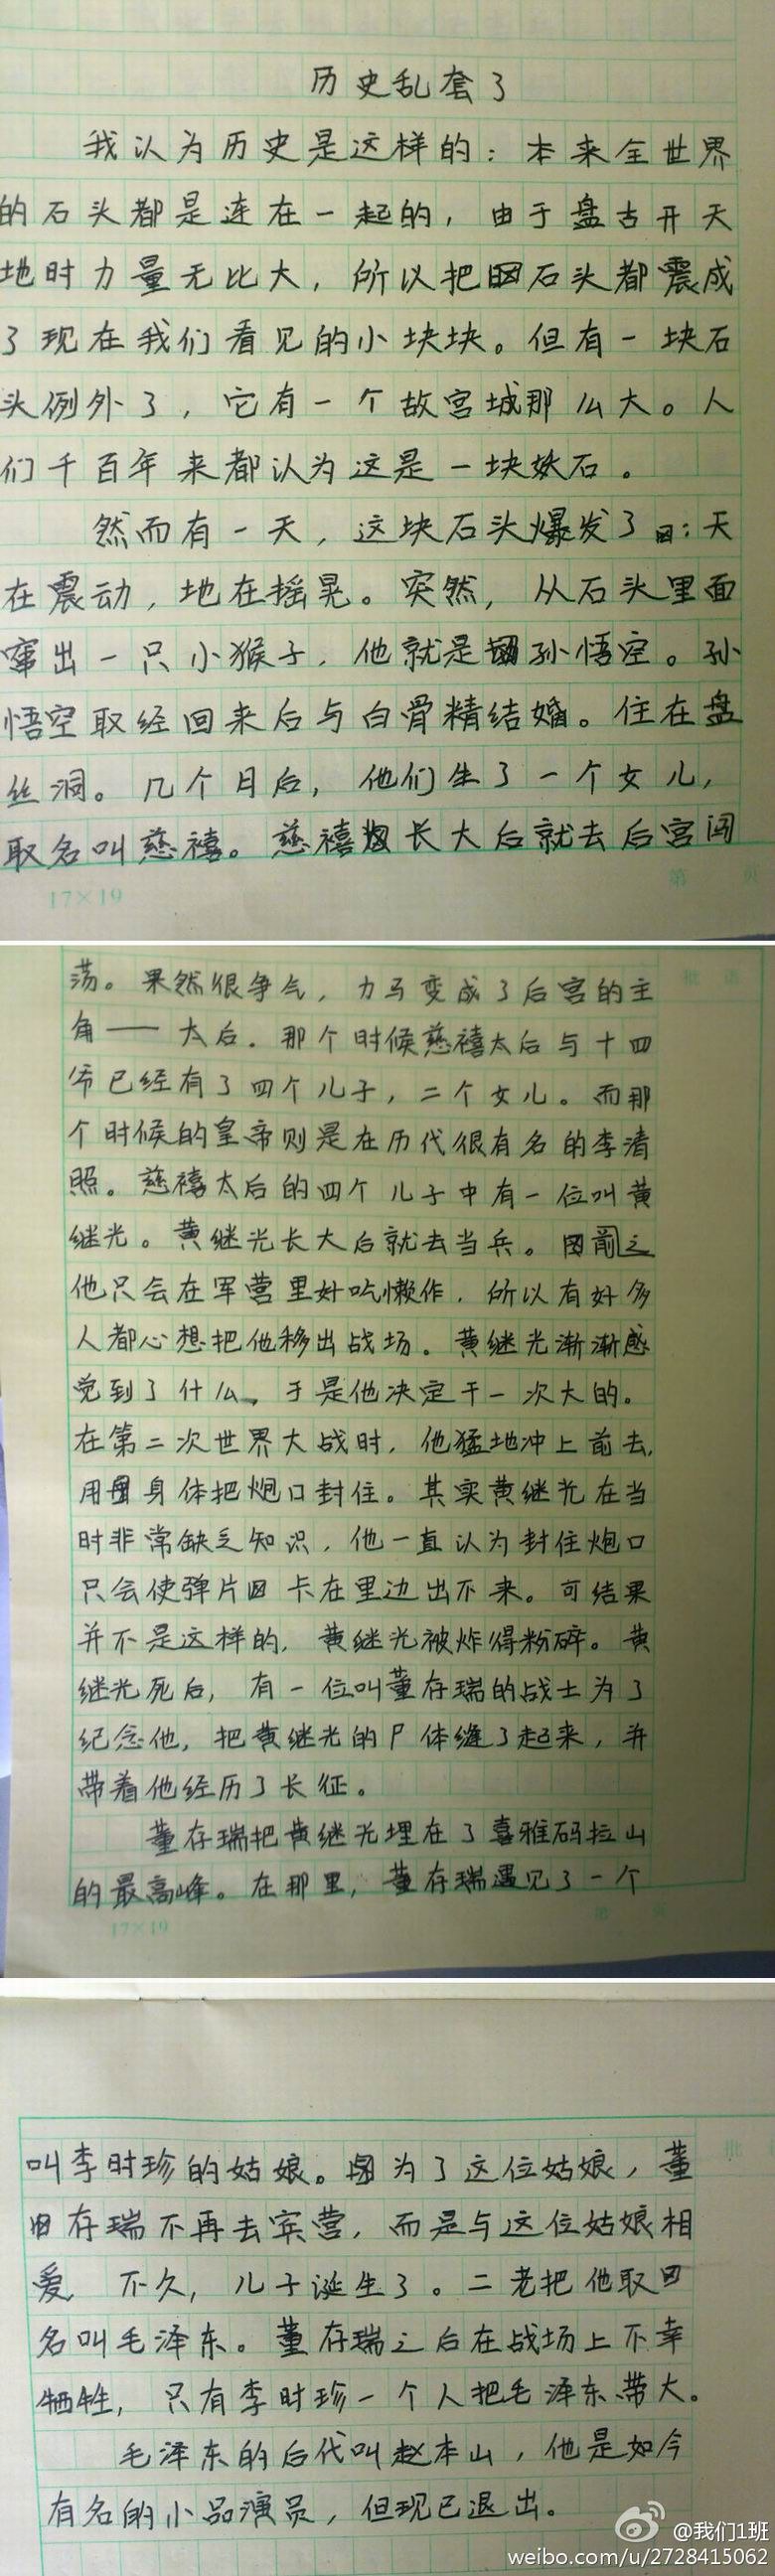 历史乱套了
我认为历史是这样的：本来全世界
的石头都是连在一起的，由于盘古开天
地时力量无比大，所以把石头都震成
了现在我们看见的小块块。但有一块石
头例外了，它有一个故宫城那么大。人
们千百年来都认为这是一块妖石。
然而有一天，这块石头爆发了：天
在震动，地在摇晃。突然，从石头里面
窜出一只小猴子，他就是孙悟空。孙
悟空取经回来后与白骨精结婚。住在盘
丝洞。几个月后，他们生了一个女儿，
取名叫慈禧。慈禧长大后就去后宫闯
17×19
第 页
荡。果然很争气，力马变成了后宫的主
角——太后。那个时候慈禧太后与十四
爷已经有了四个儿子，二个女儿。而那
个时候的皇帝则是在历代很有名的李清
照。慈禧太后的四个儿子中有一位叫黄
继光。黄继光长大后就去当兵。前之
他只会在军营里好吃懒作，所以有好多
人都心想把他移出战场。黄继光渐渐感
觉到了什么，于是他决定干一次大的。
在第二次世界大战时，他猛地冲上前去，
用身体把炮口封住。其实黄继光在当
时非常缺乏知识，他一直认为封住炮口
只会使弹片卡在里边出不来。可结果
并不是这样的，黄继光被炸得粉碎。黄
继光死后，有一位叫董存瑞的战士为了
纪念他，把黄继光的尸体缝了起来，并
带着他经历了长征。
董存瑞把黄继光埋在了喜雅码拉山
的最高峰。在那里，董存瑞遇见了一个
17×19
第 页
叫李时珍的姑娘。为了这位姑娘，董
存瑞不再去宾营，而是与这位姑娘相
爱 不久，儿子诞生了。二老把他取
名叫毛泽东。董存瑞之后在战场上不幸
牺牲，只有李时珍一个人把毛泽东带大。
毛泽东的后代叫赵本山，他是如今
有名的小品演员，但现已退出。
@我们1班
weibo.com/u/2728415062